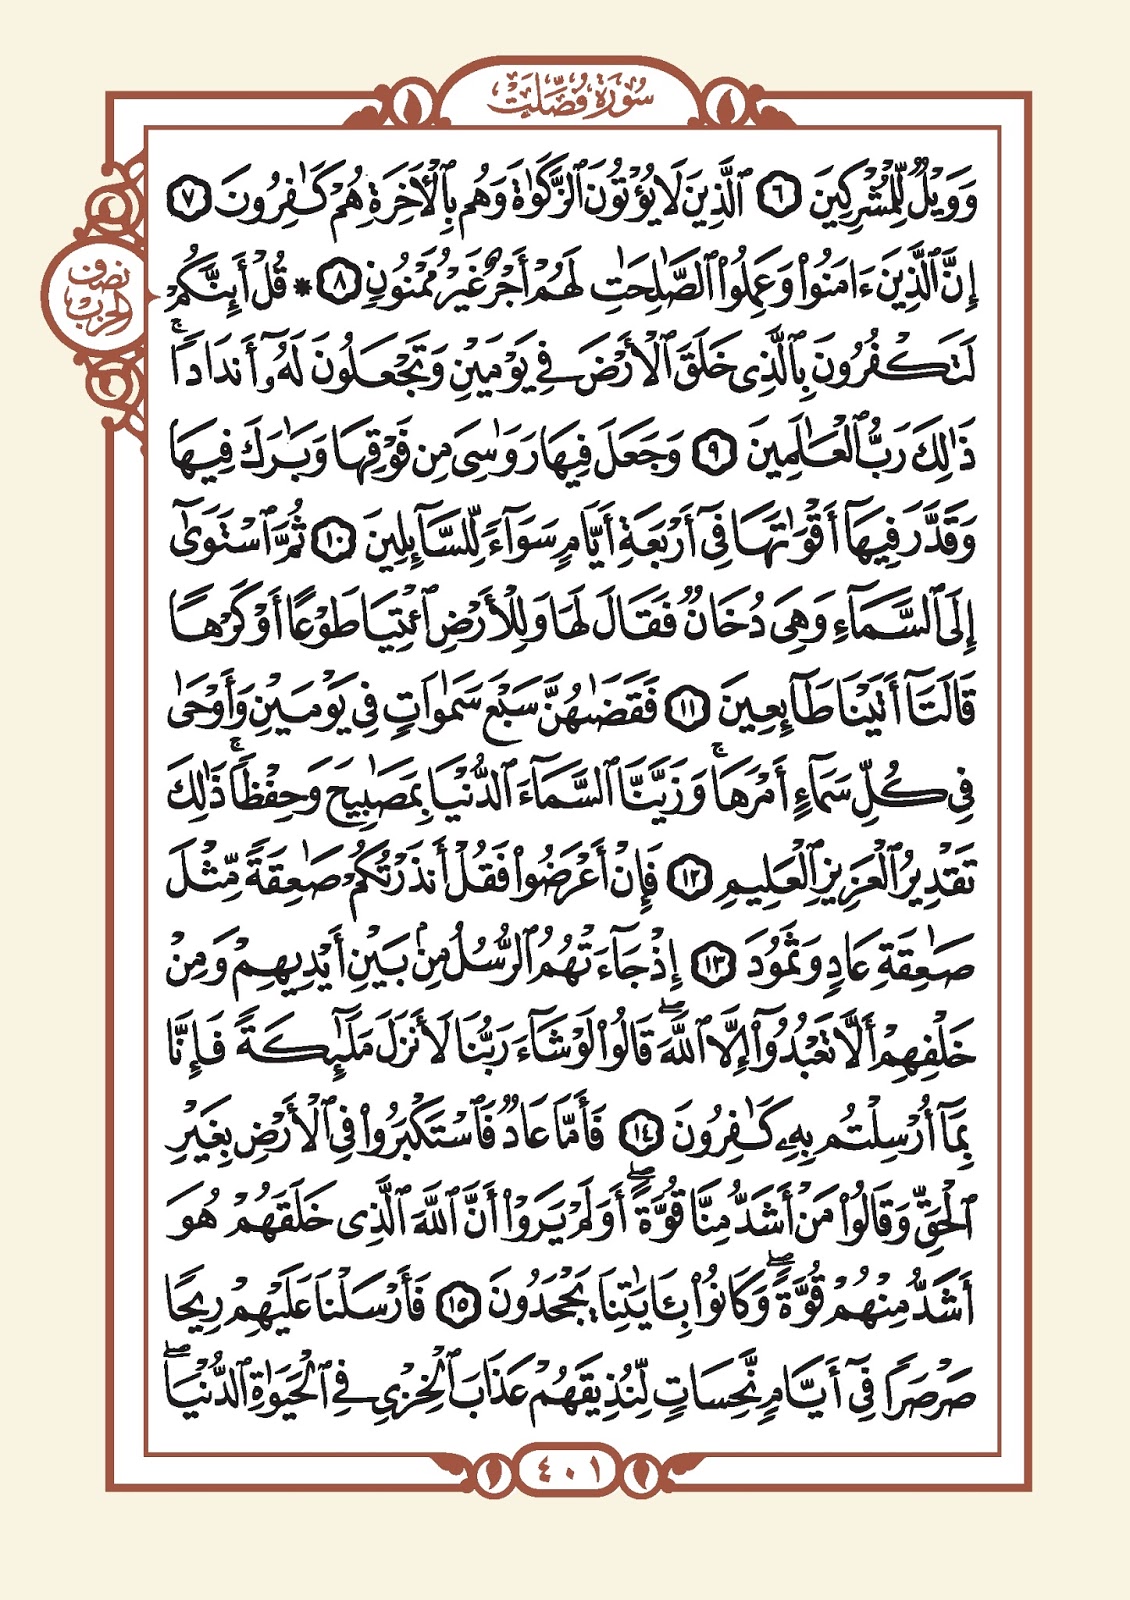 سُورَةُ فُصِّلَتْ
وَوَيْلٌ لِّلْمُشْرِكِينَ ٦ ٱلَّذِينَ لَا يُؤْتُونَ ٱلزَّكَوٰةَ وَهُم بِٱلْأَخِرَةِ هُمْ كَٰفِرُونَ ٧
إِنَّ ٱلَّذِينَ ءَامَنُوا۟ وَعَمِلُوا۟ ٱلصَّٰلِحَٰتِ لَهُمْ أَجْرٌ غَيْرُ مَمْنُونٍ ٨ * قُلْ أَئِنَّكُمْ
نصف
الحزب
لَتَكْفُرُونَ بِٱلَّذِى خَلَقَ ٱلْأَرْضَ فِى يَوْمَيْنِ وَتَجْعَلُونَ لَهُۥٓ أَندَادًاۚ
ذَٰلِكَ رَبُّ ٱلْعَٰلَمِينَ ٩ وَجَعَلَ فِيهَا رَوَٰسِىَ مِن فَوْقِهَا وَبَٰرَكَ فِيهَا
وَقَدَّرَ فِيهَآ أَقْوَٰتَهَا فِىٓ أَرْبَعَةِ أَيَّامٍ سَوَآءً لِّلسَّآئِلِينَ ١٠ ثُمَّ ٱسْتَوَىٰٓ
إِلَى ٱلسَّمَآءِ وَهِىَ دُخَانٌ فَقَالَ لَهَا وَلِلْأَرْضِ ٱئْتِيَا طَوْعًا أَوْ كَرْهًا
قَالَتَآ أَتَيْنَا طَآئِعِينَ ١١ فَقَضَىٰهُنَّ سَبْعَ سَمَٰوَاتٍ فِى يَوْمَيْنِ وَأَوْحَىٰ
فِى كُلِّ سَمَآءٍ أَمْرَهَاۚ وَزَيَّنَّا ٱلسَّمَآءَ ٱلدُّنْيَا بِمَصَٰبِيحَ وَحِفْظًاۚ ذَٰلِكَ
تَقْدِيرُ ٱلْعَزِيزِ ٱلْعَلِيمِ ١٢ فَإِنْ أَعْرَضُوا۟ فَقُلْ أَنذَرْتُكُمْ صَٰعِقَةً مِّثْلَ
صَٰعِقَةِ عَادٍ وَثَمُودَ ١٣ إِذْ جَآءَتْهُمُ ٱلرُّسُلُ مِنۢ بَيْنِ أَيْدِيهِمْ وَمِنْ
خَلْفِهِمْ أَلَّا تَعْبُدُوٓا۟ إِلَّا ٱللَّهَۖ قَالُوا۟ لَوْ شَآءَ رَبُّنَا لَأَنزَلَ مَلَٰٓئِكَةً فَإِنَّا
بِمَآ أُرْسِلْتُم بِهِۦ كَٰفِرُونَ ١٤ فَأَمَّا عَادٌ فَٱسْتَكْبَرُوا۟ فِى ٱلْأَرْضِ بِغَيْرِ
ٱلْحَقِّ وَقَالُوا۟ مَنْ أَشَدُّ مِنَّا قُوَّةًۖ أَوَلَمْ يَرَوْا۟ أَنَّ ٱللَّهَ ٱلَّذِى خَلَقَهُمْ هُوَ
أَشَدُّ مِنْهُمْ قُوَّةًۖ وَكَانُوا۟ بِـَٔايَٰتِنَا يَجْحَدُونَ ١٥ فَأَرْسَلْنَا عَلَيْهِمْ رِيحًا
صَرْصَرًا فِىٓ أَيَّامٍ نَّحِسَاتٍ لِّنُذِيقَهُمْ عَذَابَ ٱلْخِزْىِ فِى ٱلْحَيَوٰةِ ٱلدُّنْيَاۖ
٤٠١